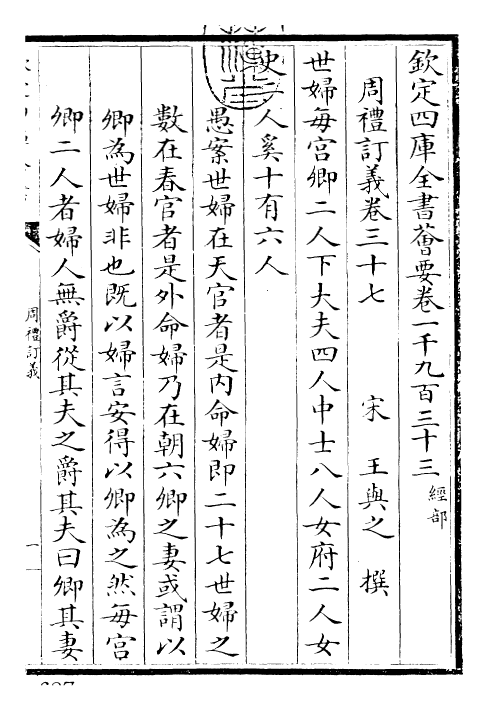 欽定四庫全書薈要卷一千九百三十三 經部
周禮訂義卷三十七 宋 王與之 撰
世婦每宮卿二人下大夫四人中士八人女府二人女
史二人奚十有六人
愚案世婦在天官者是內命婦即二十七世婦之
數在春官者是外命婦乃在朝六卿之妻或謂以
卿為世婦非也既以婦言安得以卿為之然每宮
卿二人者婦人無爵從其夫之爵其夫曰卿其妻
周禮訂義
一